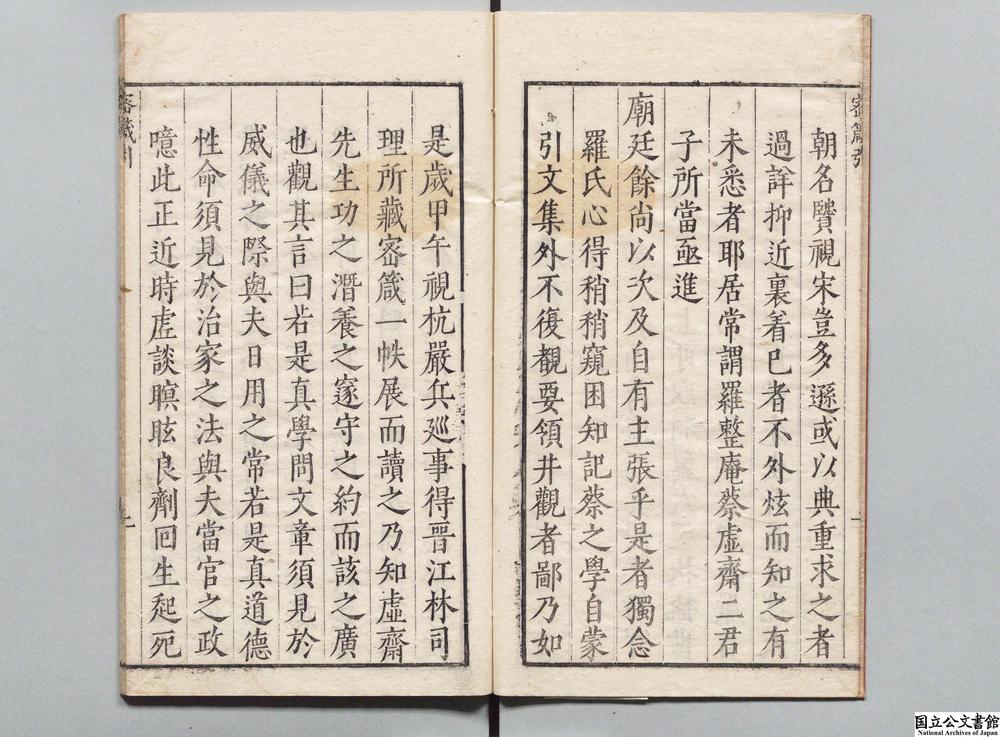 朝名賢視宋豈多遜或以典重求之者
過詳抑近裏着已者不外炫而知之有
未悉者耶居常謂羅整庵蔡虛齋二君
子所當亟進
廟廷餘尚以次及自有主張乎是者獨念
羅氏心得稍稍窺困知記蔡之學自蒙
引文集外不復覩要領井觀者鄙乃如
是歲甲午視杭嚴兵廵事得晋江林司
理所藏宻箴一帙展而讀之乃知虛齋
先生功之潛養之邃守之約而該之廣
也觀其言曰若是真學問文章須見於
威儀之際與夫日用之常若是真道德
性命須見於治家之法與夫當官之政
噫此正近時虛談瞑眩良劑囘生起死
国立公文書館
National Archives of Japan